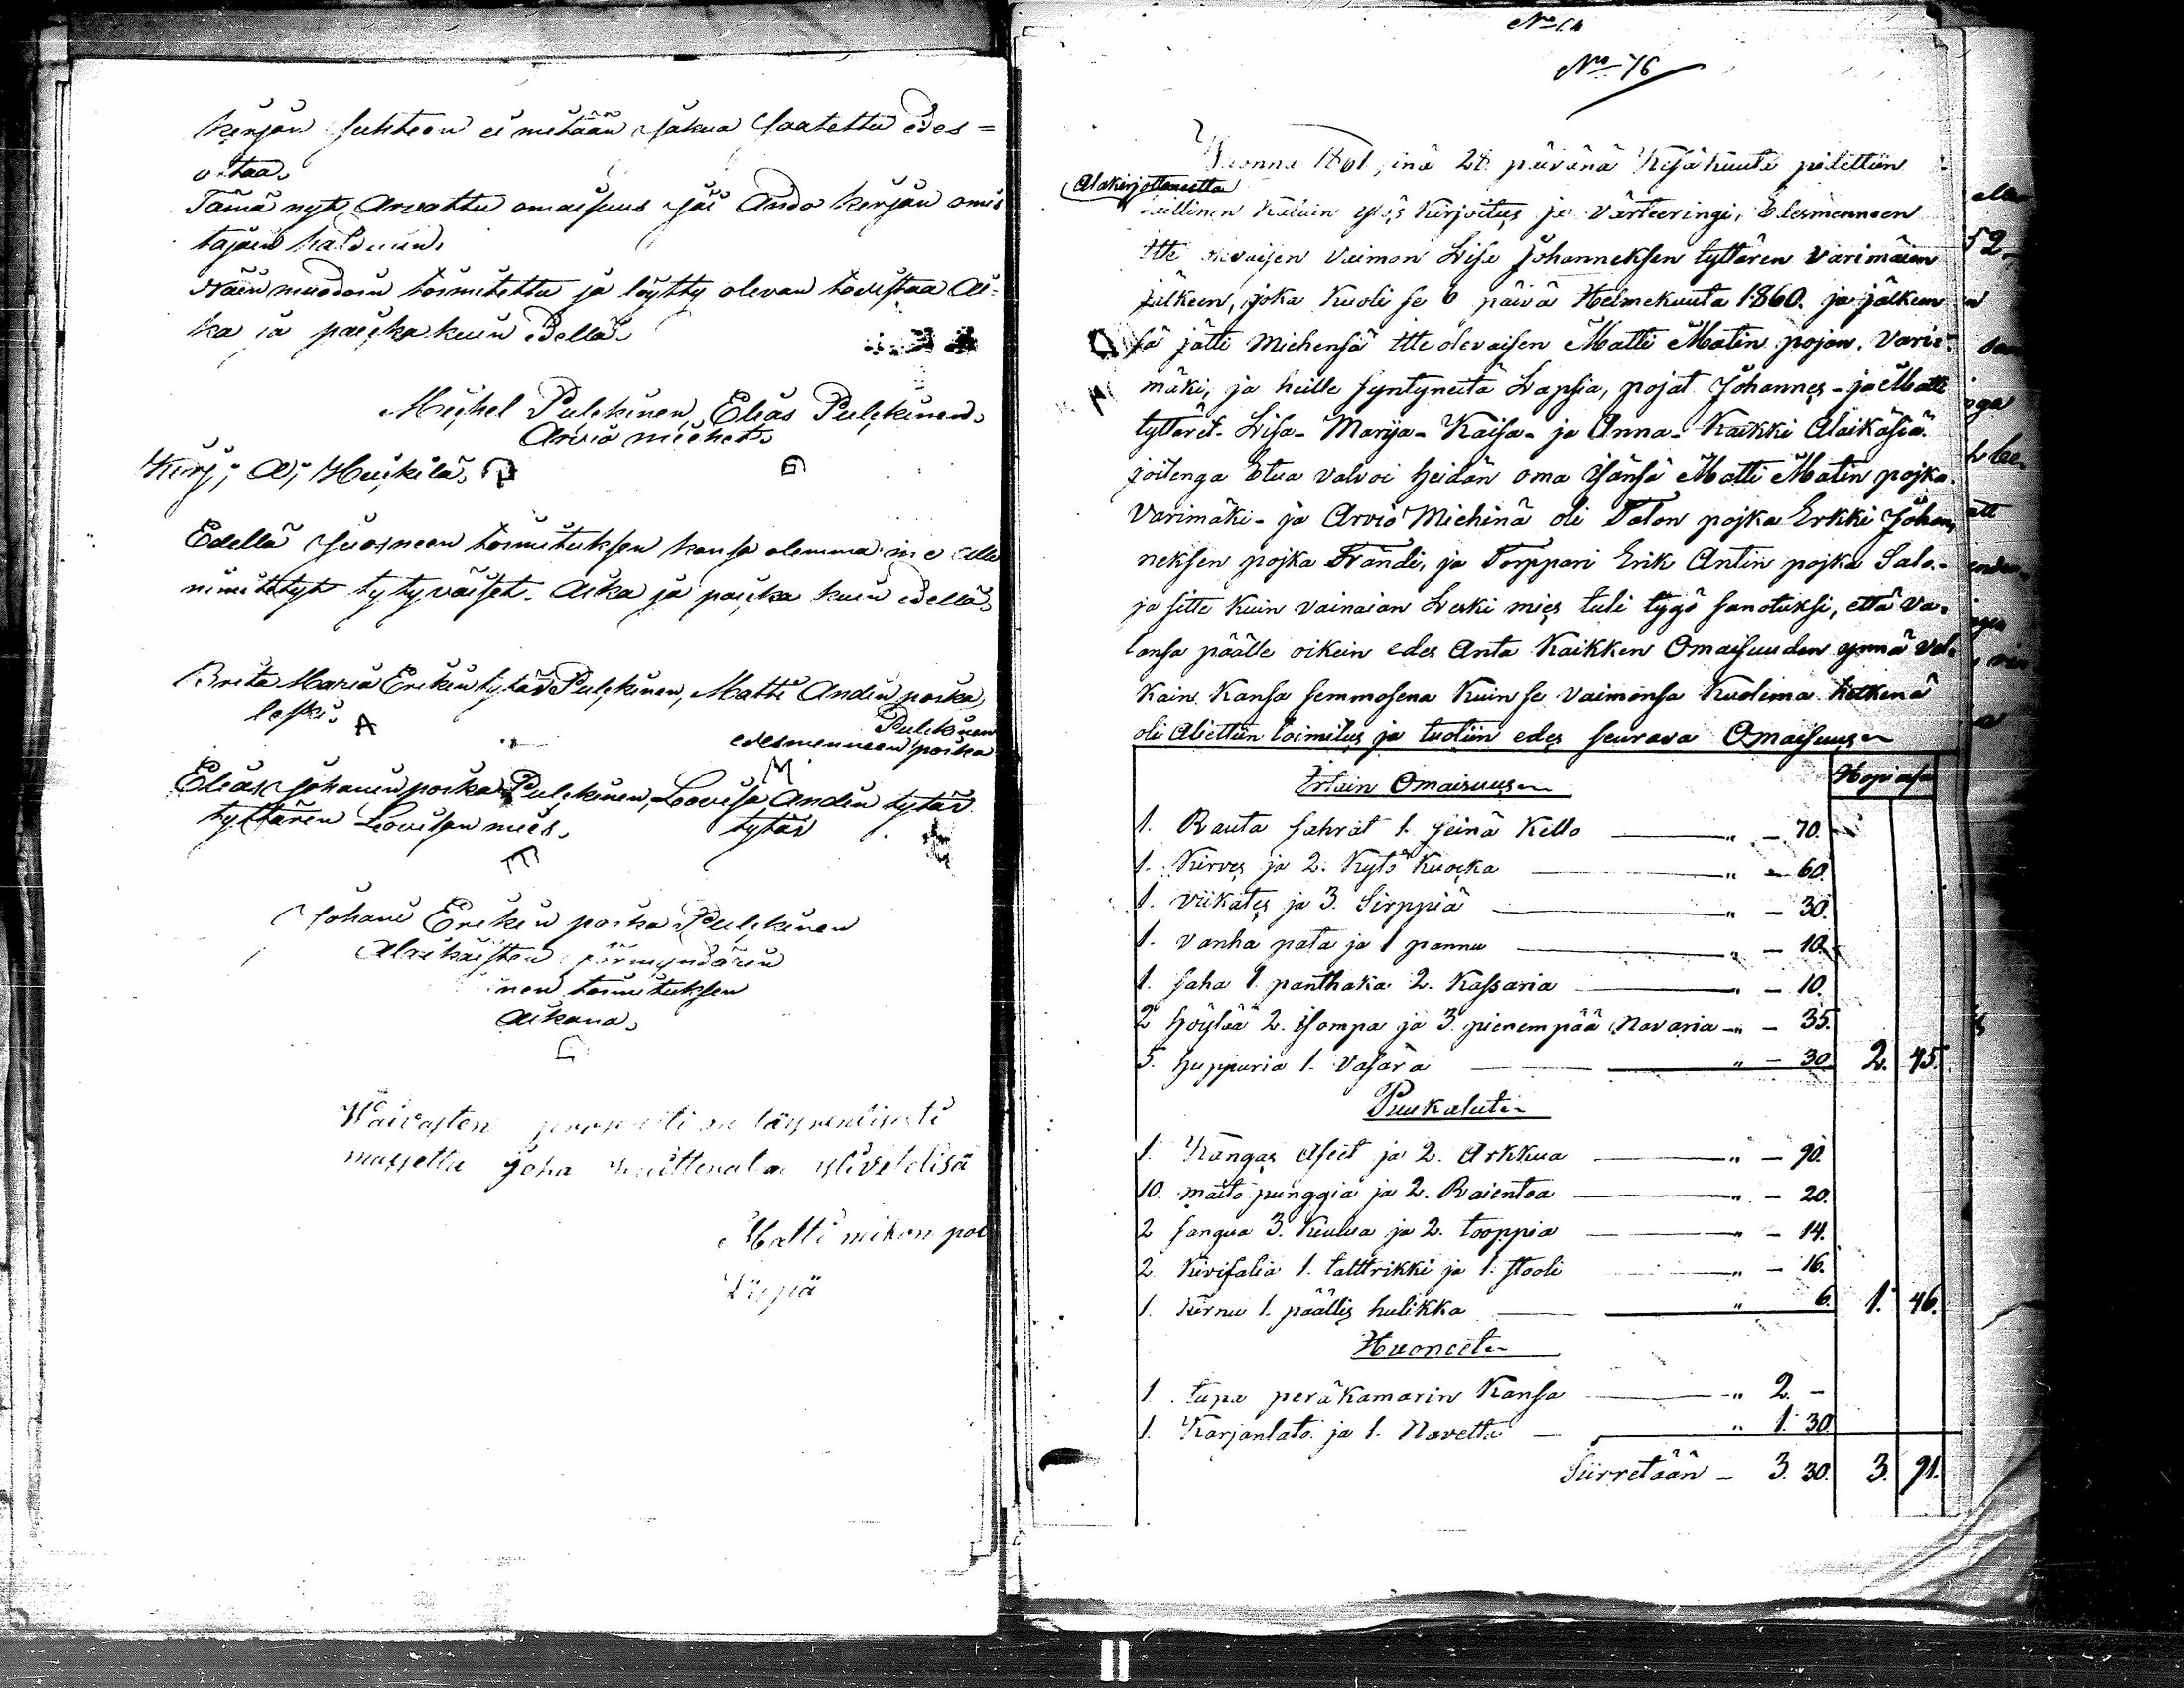 kirjan suhteen ei mitään jakua saatettu edes=
ottaa.
Tämä nyt Arvattu omaisuus jäi Ando kirjan omis
tajain haltuun.
Näin muodoin toimitettu ja löytty olevan todistaa Ai=
ka ja paicka kuin edellä.
Michel Pulckinen, Elias Pulckinen.
Arvio miehet.
Kirj; A; Huckila.
Edellä juosneen toimituksen kansa olemma me alla
nimitetyt tytyväiset. Aika ja paicka kuin edellä.
Brita Maria Erikin tytär Pulckinen, Matti Andin poika
leski.
Pulckinen
edesmenneen poika
Elias Johanin poika Pulckinen, Lovisa Andin tytär
tyttären Lovisan mies.
tytär
Johani Erikin poika Pulckinen
Alaikäisten
toimituksen
Aikana.
Waivasten täysentisesti
maxettu
Matti mikon poi
No 76
Vuonna 1861, inä 28 päivänä Kesäkuuta pidettiin
Alakirjottaneetta
laillinen Kaluin ylös Kirjoitus ja Värteeringi, Edesmenneen
Itte olevaisen Vaimon Lisa Johanneksen tyttären Varimäien
jälkeen, joka Kuoli se 6 päivä Helmekuuta 1860. ja jälkeen
sä jätti Miehensä Itte olevaisen Matti Matin pojan. Vari=
mäki, ja heille syntyneitä Lapsia, pojat Johannes- ja Matti
tyttäret- Lisa- Marija- Kaisa- ja Anna- Kaikki Alaikäsiä.
joitenga Etua valvoi heidän oma Isänsä Matti Matin pojka.
Varimäki- ja Arvio Miehinä oli Talon pojka Erkki Johan,
neksen pojka Frändi, ja Torppari Erik Antin pojka Salo.-
ja sitte kuin vainaian Leski mies tuli tygö sanotuksi, että Va=
lansa päälle oikein edes Anta Kaikken Omaisuuden ynnä Vel=
kain Kansa semmosena Kuin se Vaimonsa Kuolema hetkenä
oli Aliettiin toimitus ja tuotiin edes seurava Omaisuus
Irtain Omaisuus
Hopiassa
1. Rauta sahrat 1. seinä Kello " - 70.
1. Kirves ja 2. Kytö Kuocka " - 60.
1. Viikates ja 3. Sirppiä " - 30.
1. Vanha pata ja 1 pannu " - 10.
1. saha 1. panthaka 2. Kassaria " - 10.
2 höylää 2. isompa ja 3. pienempää Navaria " - 35.
5. huppuria 1. Vasara " - 30 2. 45.
Puukalut
1. Kangas Aseet ja 2. Arkkua " - 90.
10. maito punggia ja 2. Raientoa " - 20.
2 sangua 3. Kiulua ja 2. tooppia " - 14.
2 Kivisalia 1. talttrikki ja 1. stooli " - 16.
1. Kirnu 1. päällis hulikka " 6. 1. 46.
Huoneet
1. tupa peräkamarin Kansa " 2. -
1. Karjanlato ja 1. Navetta " 1. 30.
Siirretään - 3. 30. 3. 91.